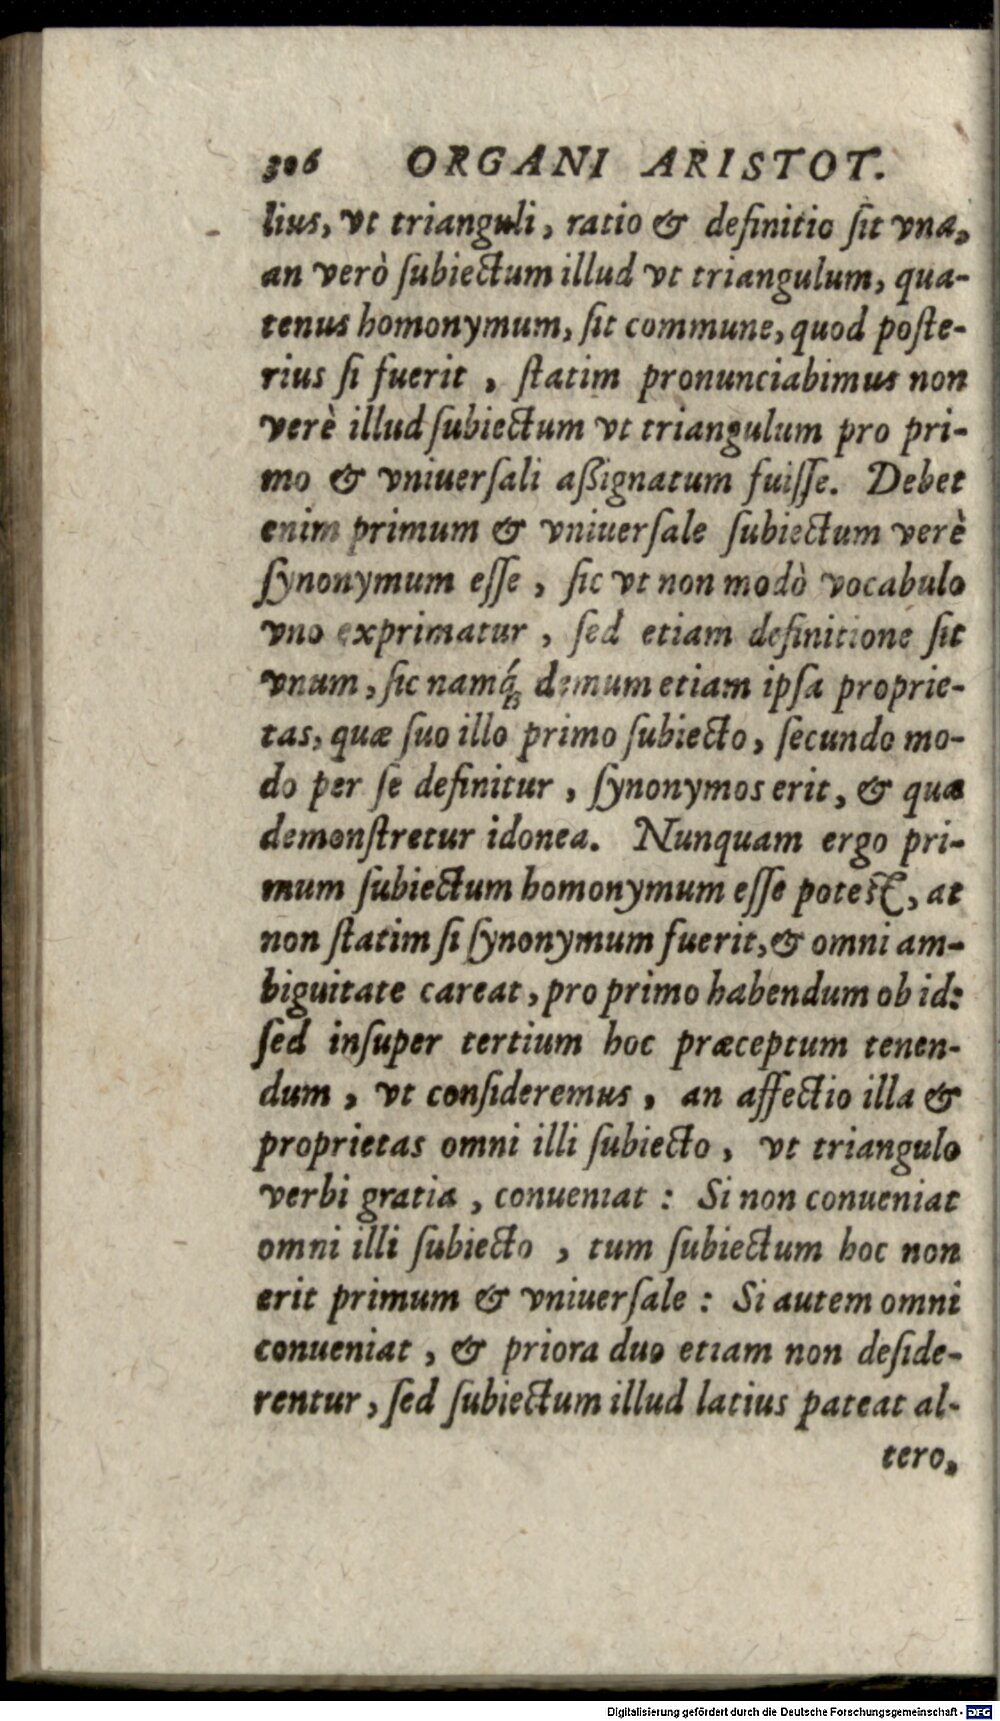 306 ORGANI ARISTOT.
lius, vt trianguli, ratio & definitio ſit vna,
an verò ſubiectum illud vt triangulum, qua-
tenus homonymum, ſit commune, quod poſte-
rius ſi fuerit, ſtatim pronunciabimus non
verè illud ſubiectum vt triangulum pro pri-
mo & vniuerſali aßignatum fuiſſe. Debet
enim primum & vniuerſale ſubiectum verè
ſynonymum eſſe, ſic vt non modò vocabulo
vno exprimatur, ſed etiam definitione ſit
vnum, ſic namq́; demum etiam ipſa proprie-
tas, quæ ſuo illo primo ſubiecto, ſecundo mo-
do per ſe definitur, ſynonymos erit, & quæ
demonſtretur idonea. Nunquam ergo pri-
mum ſubiectum homonymum eſſe poteſt, at
non ſtatim ſi ſynonymum fuerit, & omni am-
biguitate careat, pro primo habendum ob id:
ſed inſuper tertium hoc præceptum tenen-
dum, vt conſideremus, an affectio illa &
proprietas omni illi ſubiecto, vt triangulo
verbi gratia, conueniat: Si non conueniat
omni illi ſubiecto, tum ſubiectum hoc non
erit primum & vniuerſale: Si autem omni
conueniat, & priora duo etiam non deſide-
rentur, ſed ſubiectum illud latius pateat al-
tero,
Digitalisierung gefördert durch die Deutsche Forschungsgemeinschaft - DFG